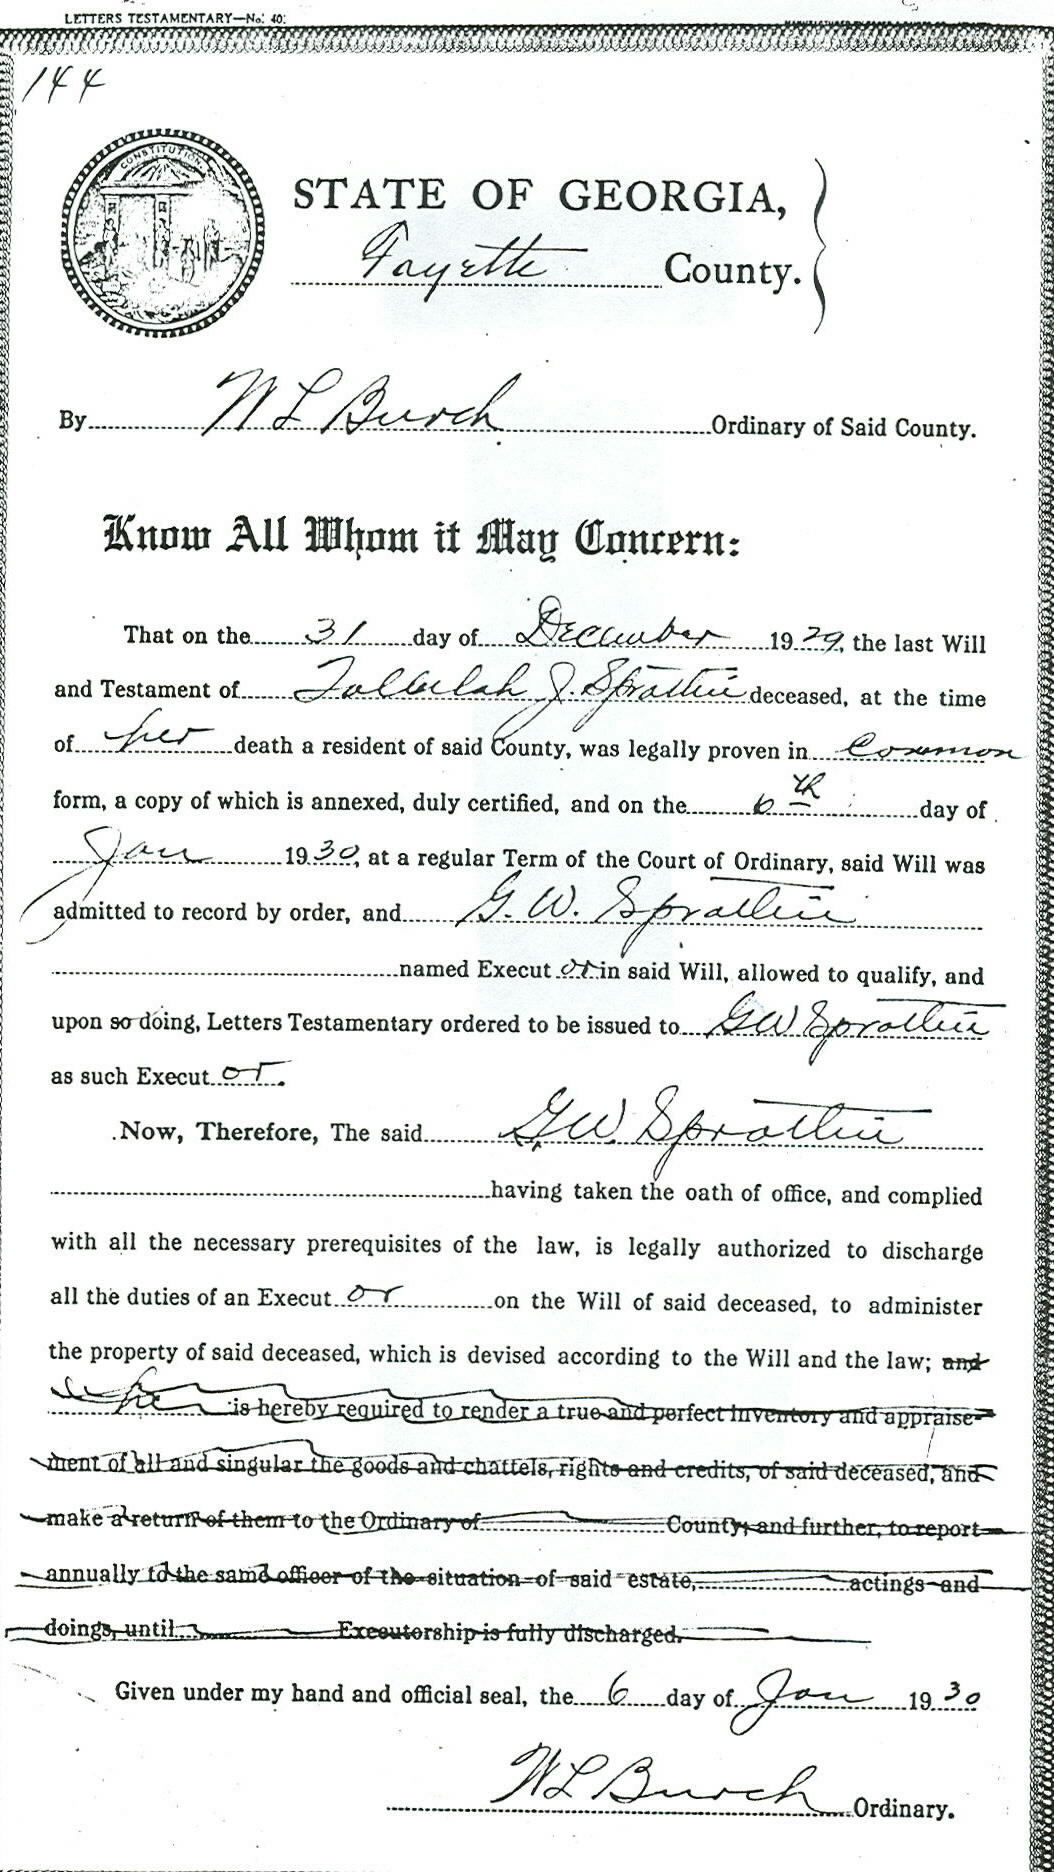 LETTERS TESTAMENTARY—No. 40.
144
CONSTITUTION
STATE OF GEORGIA,
Fayette County.
By W L Burch Ordinary of Said County.
Know All Whom it May Concern:
That on the 31 day of December 1929, the last Will
and Testament of Tallulah J. Spratlin deceased, at the time
of her death a resident of said County, was legally proven in Common
form, a copy of which is annexed, duly certified, and on the 6th day of
Jan 1930, at a regular Term of the Court of Ordinary, said Will was
admitted to record by order, and G. W. Spratlin
named Executor in said Will, allowed to qualify, and
upon so doing, Letters Testamentary ordered to be issued to G W Spratlin
as such Executor.
Now, Therefore, The said G W. Spratlin
having taken the oath of office, and complied
with all the necessary prerequisites of the law, is legally authorized to discharge
all the duties of an Executor on the Will of said deceased, to administer
the property of said deceased, which is devised according to the Will and the law; and
is hereby required to render a true and perfect inventory and appraise-
ment of all and singular the goods and chattels, rights and credits, of said deceased, and
make a return of them to the Ordinary of County; and further, to report
annually to the same officer of the situation of said estate, actings and
doings, until Executorship is fully discharged.
Given under my hand and official seal, the 6 day of Jan 1930
W L Burch Ordinary.